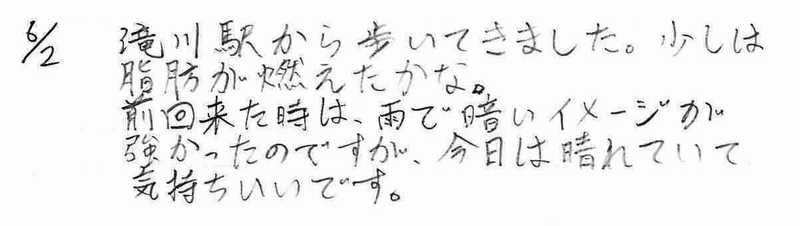 6/2 滝川駅から歩いてきました。少しは
脂肪が燃えたかな。
前回来た時は、雨で暗いイメージが
強かったのですが、今日は晴れていて
気持ちいいです。